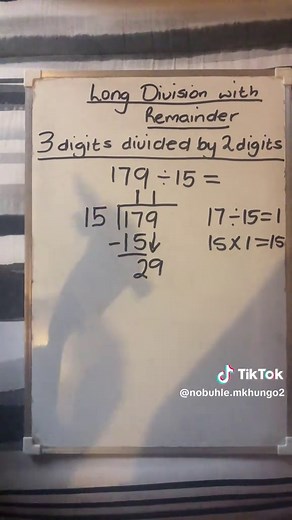 Long Division with
Remainder
3 digits divided by 2 digits
179 ÷ 15 =
11
15 179 17 ÷ 15 = 1
-15↓ 15 × 1 = 15
29
TikTok
@nobuhle.mkhungo2